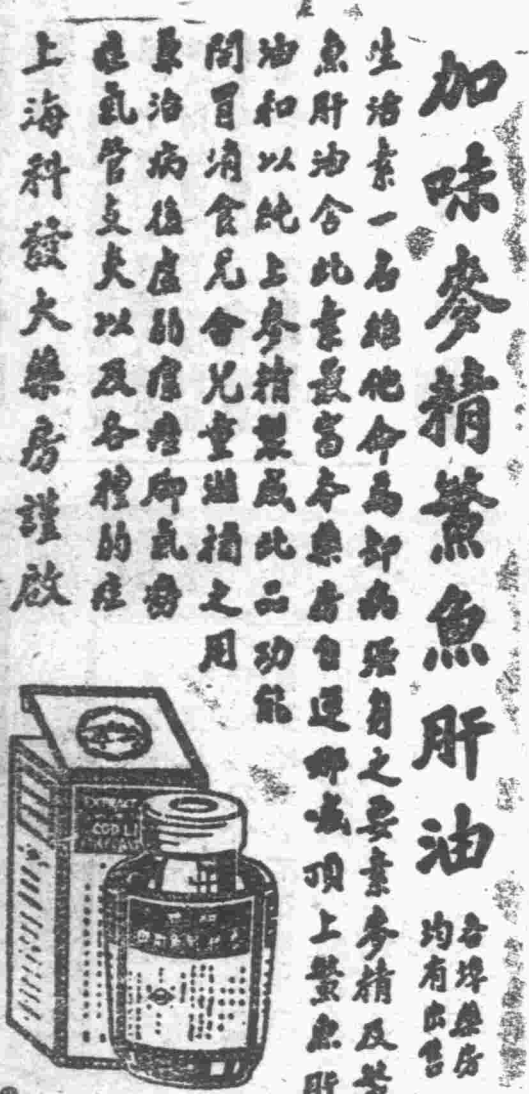 加味麥精鱉魚肝油
各埠藥房
均有出售
生活素一名維他命為却病强身之要素麥精及鱉
魚肝油含此素最富本藥房自運挪威頂上鱉魚肝
油和以純上麥精製成此品功能
開胃消食兄會兒童滋補之用
兼治病後虛弱癆瘵脚氣癆
症氣管支炎以及各種的症
上海科發大藥房謹啟
EXTRACT
COD LI